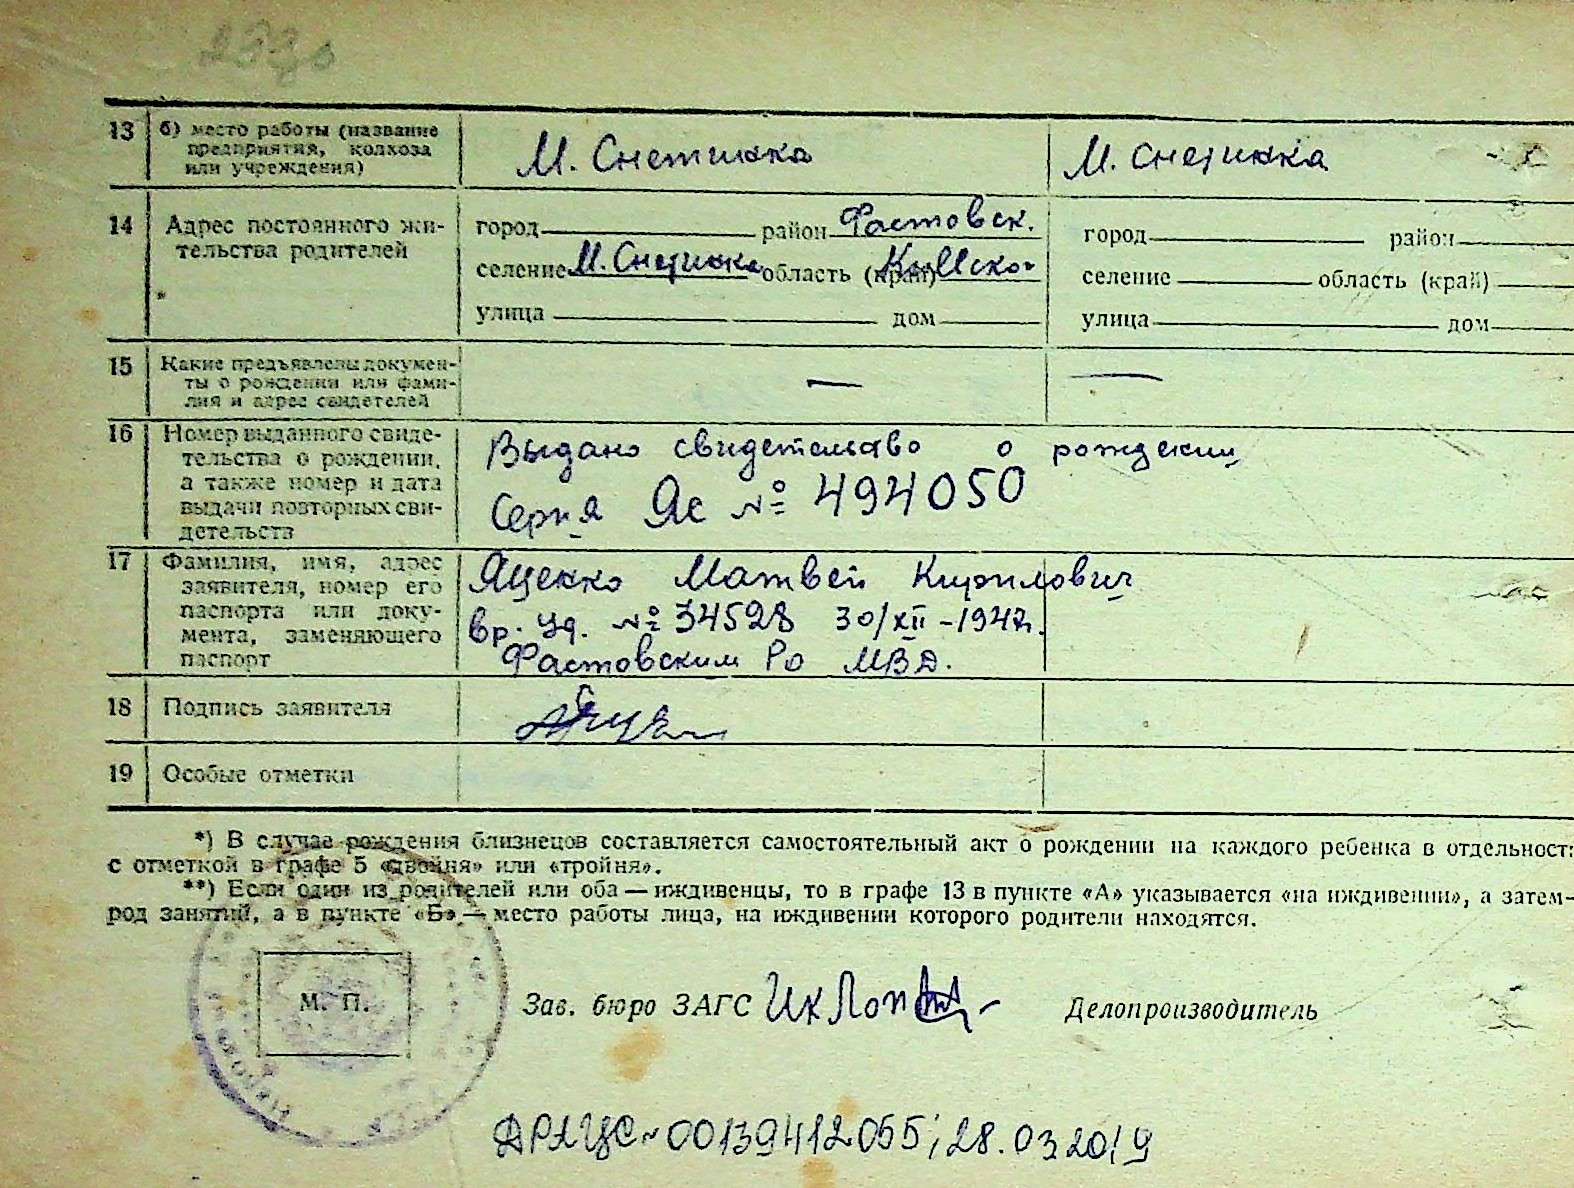 13 б) место работы (название предприятия, колхоза или учреждения) М. Снетинка М. Снетинка
14 Адрес постоянного жительства родителей
город район Фастовск. город район
селение М. Снетинка область (край) Киевской селение область (край)
улица дом улица дом
15 Какие предъявлены документы о рождении или фамилия и адрес свидетелей — —
16 Номер выданного свидетельства о рождении, а также номер и дата выдачи повторных свидетельств
Выдано свидетельство о рождении
Серия Яс № 494050
17 Фамилия, имя, адрес заявителя, номер его паспорта или документа, заменяющего паспорт
Яценко Матвей Кирилович
Вр. Уд. № 34528 30/XII-1947г.
Фастовским РО МВД.
18 Подпись заявителя
19 Особые отметки
*) В случае рождения близнецов составляется самостоятельный акт о рождении на каждого ребенка в отдельност
с отметкой в графе 5 «двойня» или «тройня».
**) Если один из родителей или оба — иждивенцы, то в графе 13 в пункте «А» указывается «на иждивении», а затем—
род занятий, а в пункте «Б» — место работы лица, на иждивении которого родители находятся.
М. П.
Зав. бюро ЗАГС Делопроизводитель
ДРАЦС № 00139412055; 28.03.2019